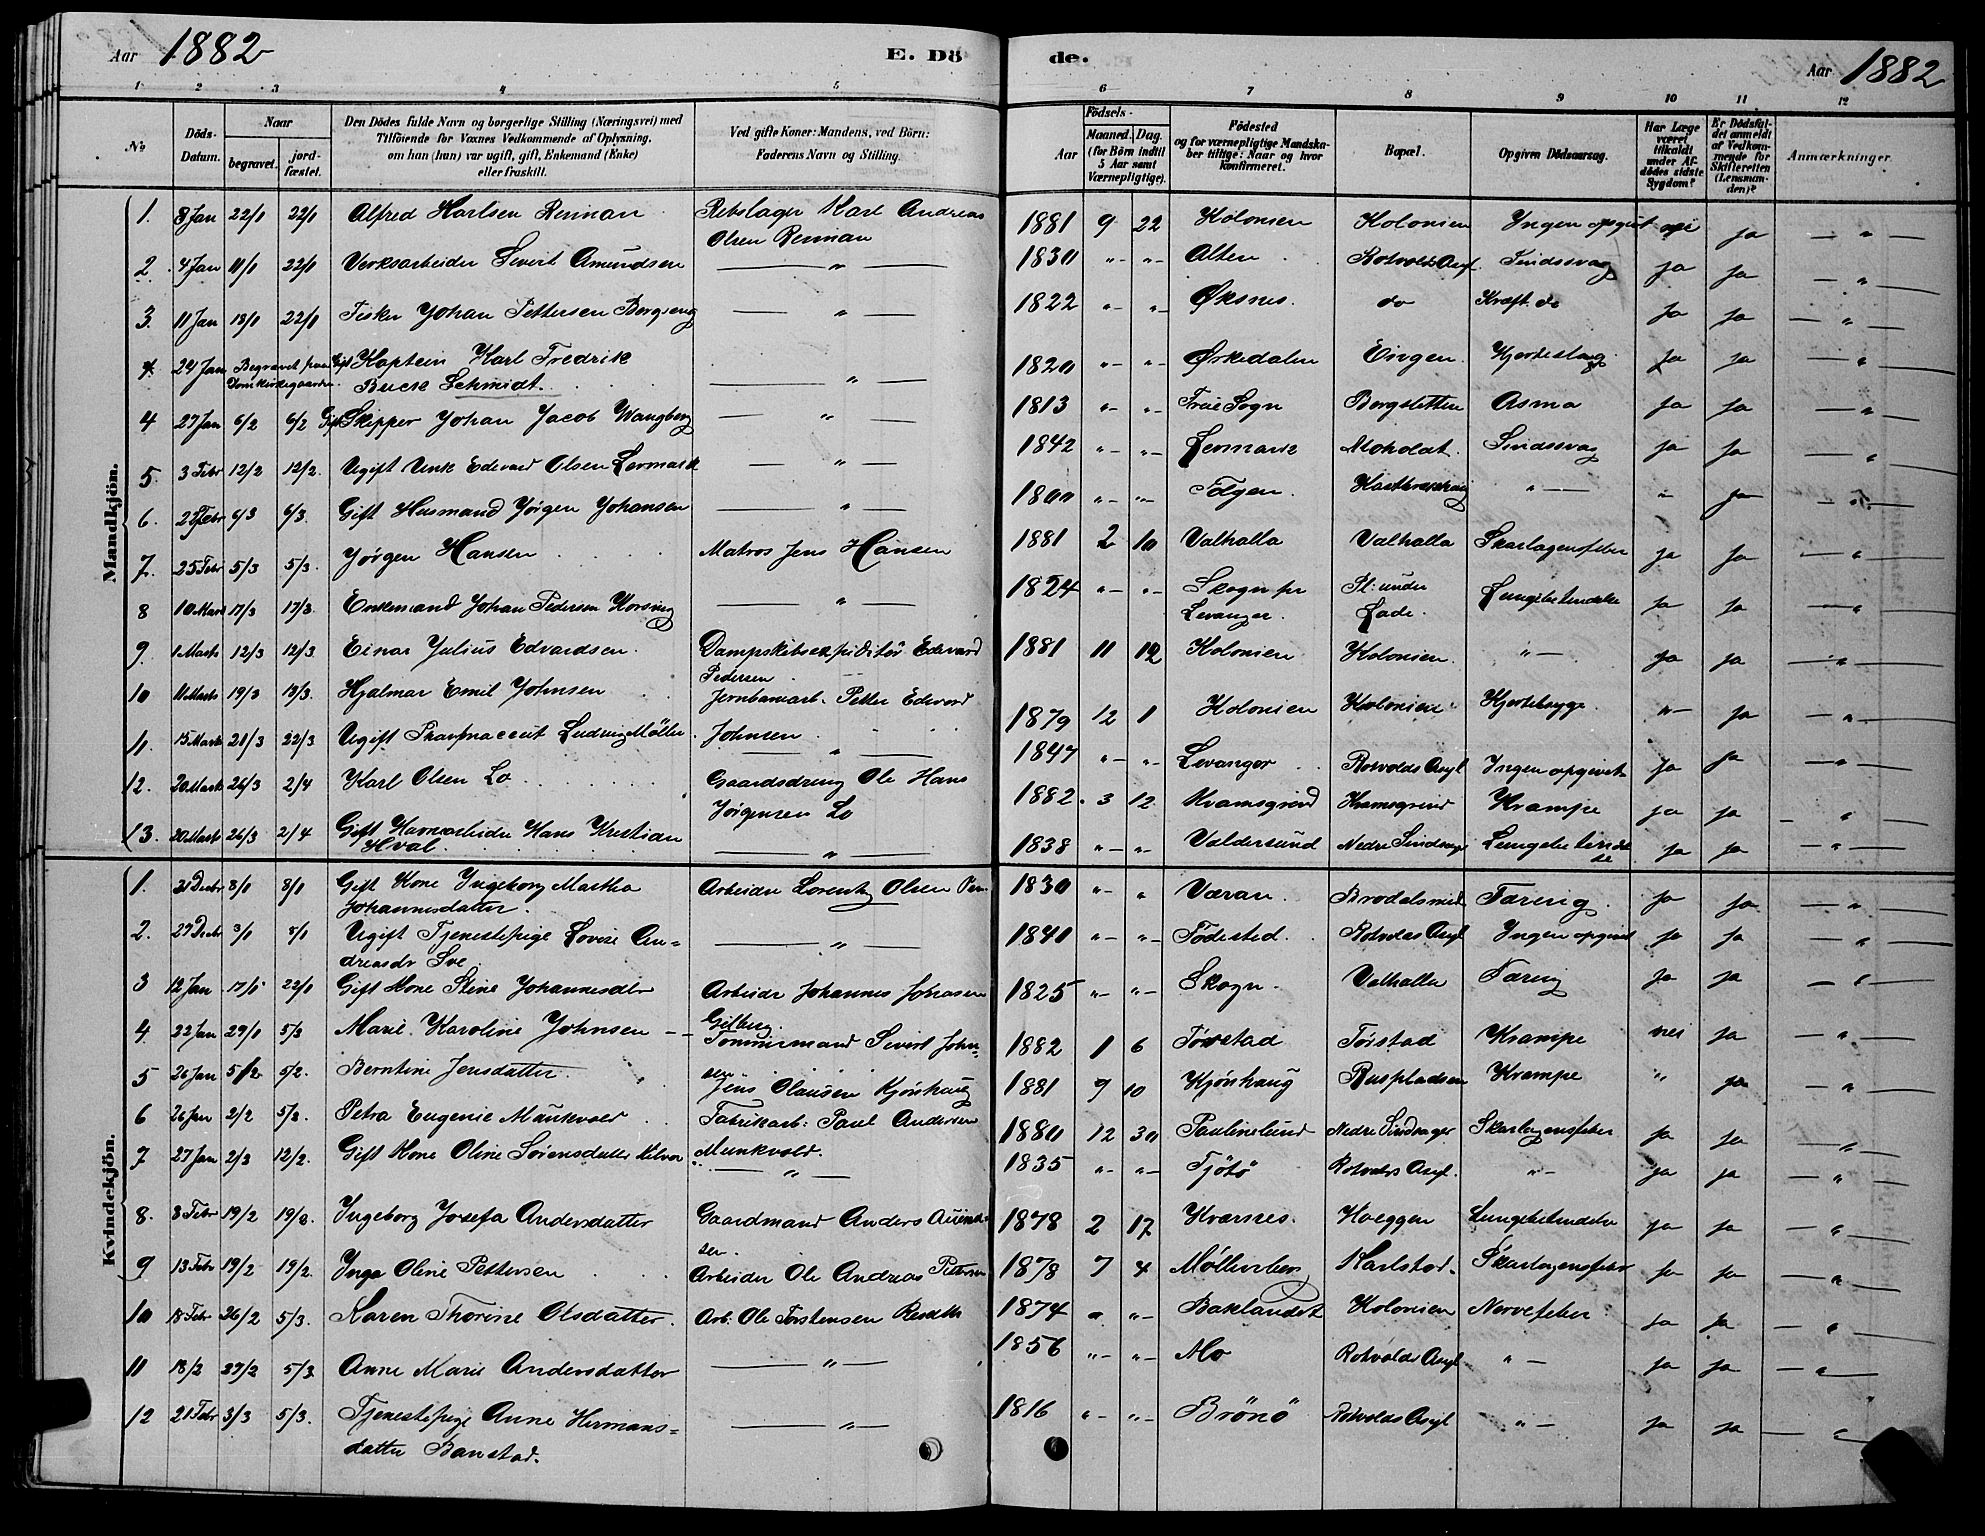 Aar 1882
E. Dö
de.
Aar 1882
1 2 3 4 5 6 7 8 9 10 11 12
No
Döds-Datum.
Naar
begravet.
jordfæstet.
Den Dödes fulde Navn og borgerlige Stilling (Næringsvei) med
Tilföiende for Voxnes Vedkommende af Oplysning,
om han (hun) var ugift, gift, Enkemand (Enke)
eller fraskilt.
Ved gifte Koner: Mandens, ved Börn:
Faderens Navn og Stilling.
Födsels-
Aar
Maaned. Dag.
(for Börn indtil
5 Aar samt
Værnepligtige).
Födested
og for værnepligtige Mandskaber
tillige: Naar og hvor
konfirmeret.
Bopæl.
Opgiven Dödsaarsag.
Har Læge
været
tilkaldt
under Afdödes
sidste
Sygdom?
Er Dödsfaldet
anmeldt
af Vedkommende
for
Skifteretten
(Lensmanden)?
Anmærkninger.
Mandkjön.
1. 8 Jan 22/1 22/1 Alfred Karlsen Reinan Rebslager Karl Andreas 1881 9 22 Kolonien Kolonien Ingen opgivet nei ja — " —
Olsen Reinan
2. 4 Jan 11/1 22/1 Verksarbeider Sivert Amundsen — " — 1830 " " Alten Rotvolds Asyl Sindssvag ja ja — " —
3. 11 Jan 18/1 22/1 Fisker Johan Pettersen — " — 1822 " " Øksnes do Kræft do ja ja — " —
4. 24 Jan Begravet paa Gift Kaptein Karl Fredrik
Domkirkegaarden. Buck Schmidt — " — 1820 " " Ørkedalen Eingen ja ja — " —
4 27 Jan 6/2 6/2 Gift Skipper Johan Jacob Wangberg — " — 1813 " " Frue Sogn Borgsletten Asma ja ja — " —
5 3 Febr 12/2 12/2. Ugift Edevard Olsen Levmark — " — 1842 " " Levmark Moholdt Sindssvag ja ja — " —
6. Febr 6/3 6/3. Gift Husmand Jørgen Johansen — " — 1800 " " " — " ja — " —
7. 25 Febr 5/3 5/3. Jørgen Hansen Matros Jens Hansen 1881 2 10 Valhalla Valhalla Skarlagensfeber ja ja — " —
8 10 Mars 17/3 17/3. Enkemand Johan Pedersen — " — 1824 " " Skogn pr Pl: under Lungebetendelse ja ja — " —
Levanger. Lade.
9. 1 Marts 12/3 12/3. Einar Julius Edvardsen. Dampskibsexpiditør Edevard 1881 11 12 Kolonien Kolonien " — ja ja — " —
Pedersen
10 11 Marts 19/3 19/3. Hjalmar Emil Johnsen Jernbanearb. Petter Edevard 1879 12 1 Kolonien Kolonien " ja — " —
Johnsen
11. 15 Marts 21/3 22/3 Ugift Ludvig Møller — " — 1847 " " Levanger Rotvolds Asyl Ingen opgivet ja ja — " —
12. 20 Marts 26/3 2/4 Karl Olsen Lo Gaardsdreng Ole Hans 1882. 3 12 Kvamsgrind Kvamsgrind Krampe ja ja — " —
Jørgensen Lo
13. 20 Marts 26/3 2/4 Gift Havnearbeider Hans Kristian
Hval — " — 1838 " " Valdersund Nedre Lungebetendelse ja ja — " —
Kvindekjön.
1. Decbr 8/1 8/1 Gift Kone Ingeborg Martha Arbeider Lorentz Olsen 1830 " " Væran Tæring ja ja — " —
Johannesdatter.
2. 27 Decbr 3/1 8/1 Ugift Tjenestepige Lovise An= — " — 1840 " " Fødested. Rotvolds Asyl Ingen opgivet ja ja — " —
dreasdr Sve
3 12 Jan 17/1 22/1 Gift Kone Stine Johannesdtr Arbeider Johannes Johnsen 1825 " " Skogn. Valhalla Tæring ja ja — " —
Gilberg.
4. 22 Jan 29/1 5/2 Marie Karoline Johnsen Tømmermand Sivert John= 1882 1 6 Tørstad Tørstad Krampe nei ja — " —
sen
5 26 Jan 5/2 5/2. Berntine Jensdatter. Jens Olausen Kjønhaug 1881 9 10 Kjønhaug Buspladsen Krampe " ja — " —
6 26 Jan 2/2 5/2. Petra Eugenie Munkvold Fabrikarb: Paul Andersen 1880 12 30 Paulinelund Nedre Skarlagensfeber ja ja — " —
Munkvold.
7 27 Jan 2/3 12/2. Gift Kone Oline Sørensdatter — " — 1835 " " Tjøtø Rotvolds Asyl. " — ja ja — " —
8. 3 Febr 19/2 19/2. Ingeborg Josefa Andersdatter Gaardmand Anders 1878 2 17 Kværnes. Hoeggen Lungebetendelse ja ja — " —
sen.
9 13 Febr 19/2 19/2. Inga Oline Pettersen Arbeider Ole Andreas Pettersen 1878 7 4 Karlstad. Skarlagensfeber ja ja — " —
10 18 Febr 26/2 5/3. Karen Thorine Olsdatter Arb. Ole Torstensen 1874 " " Baklandet Kolonien Nervefeber ja ja — " —
11 18/2 27/2 5/3 Anne Marie Andersdatter — " — 1856 " " Mo Rotvolds Asyl " — ja ja — " —
12 21 Febr 3/3 5/3. Tjenestepige Anne Hermans= — " — 1816 " " Brønø Rotvolds Asyl " — ja ja — " —
datter Banstad.